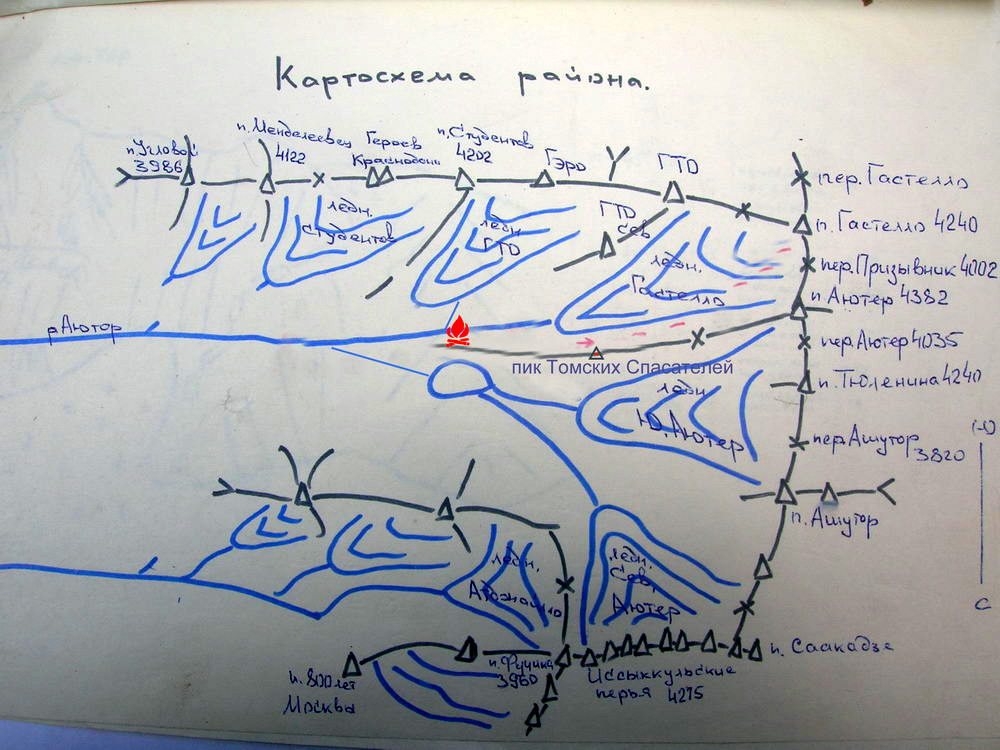 Картосхема района.
п.Угловой
3986
п.Менделеевец
4122
Героев
Краснодона
п.Студентов
4202
Гэро
ГТО
пер.Гастелло
п.Гастелло 4240
пер.Призывник 4002
п.Аютер 4382
пер.Аютер 4035
п.Тюленина 4240
пер.Ашутор
3820
п.Ашутор
ледн.
Студентов
ледн.
ГТО
ГТО
сев
ледн.
Гастелло
р.Аютор
пик Томских Спасателей
ледн.
Ю.Аютер
ледн.
ледн.
Сев.
Аютер
п.800 лет
Москвы
п.Фучика
3960
Иссыккульские
перья 4275
п.Саакадзе
Ю
С